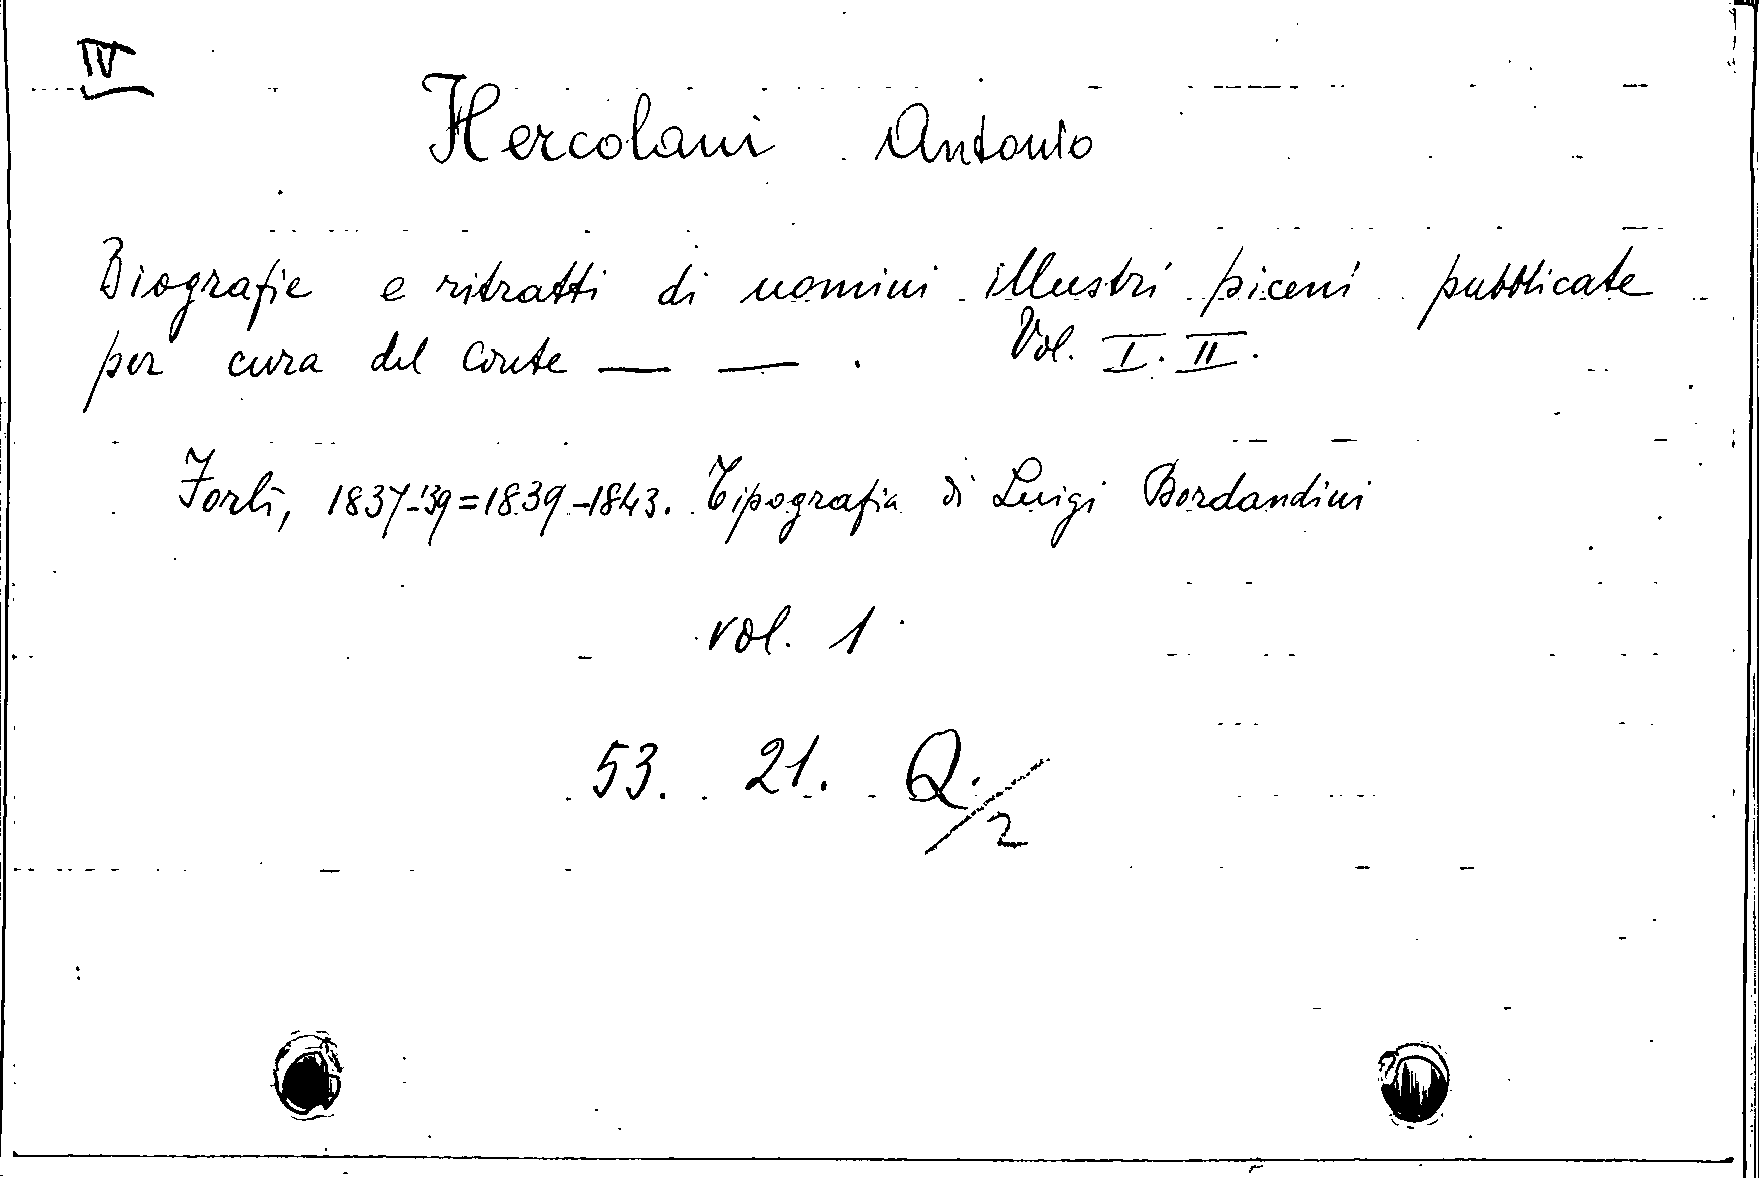 IV
Hercolani Antonio
Biografie e ritratti di uomini illustri piceni pubblicate
per cura del Conte — — . Vol. I. II.
Forlì, 1837-'39=1839-1843. Tipografia di Luigi Bordandini
vol. 1
53. 21. Q./2